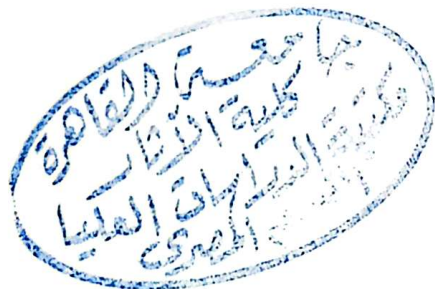 جامعة القاهرة
كلية الآثار
مكتبة الدراسات العليا
المصرى